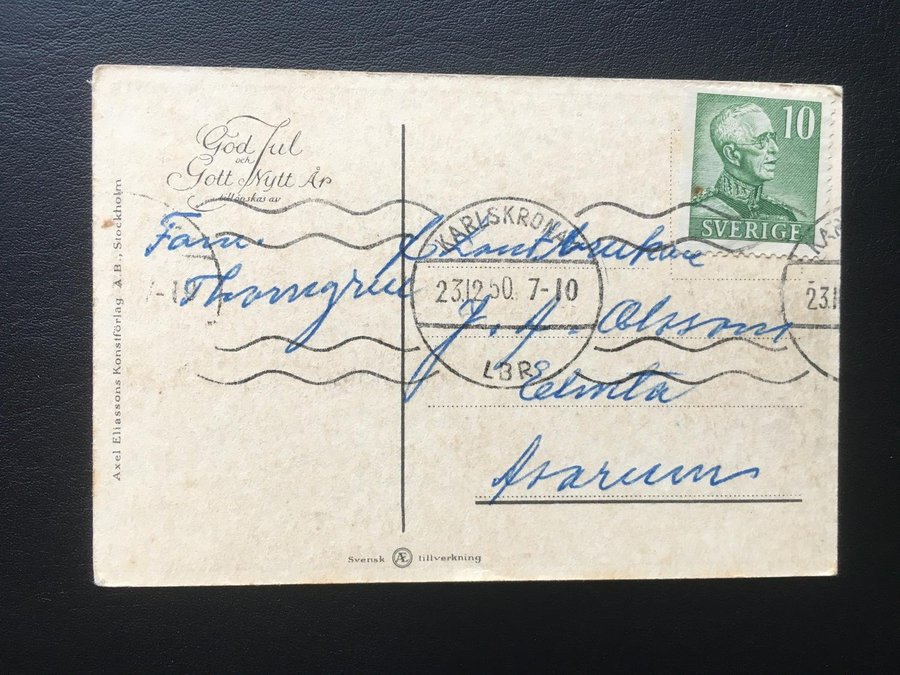 God Jul
och
Gott Nytt År
tillönskas av
Fam.
Thorngren
10
SVERIGE
KARLSKRONA
23.12.50. 7-10
LBR
Lantbrukare
J. A. Olsson
Asarum
Axel Eliassons Konstförlag A.B., Stockholm
Svensk Æ tillverkning
7-10
KAR
23.1